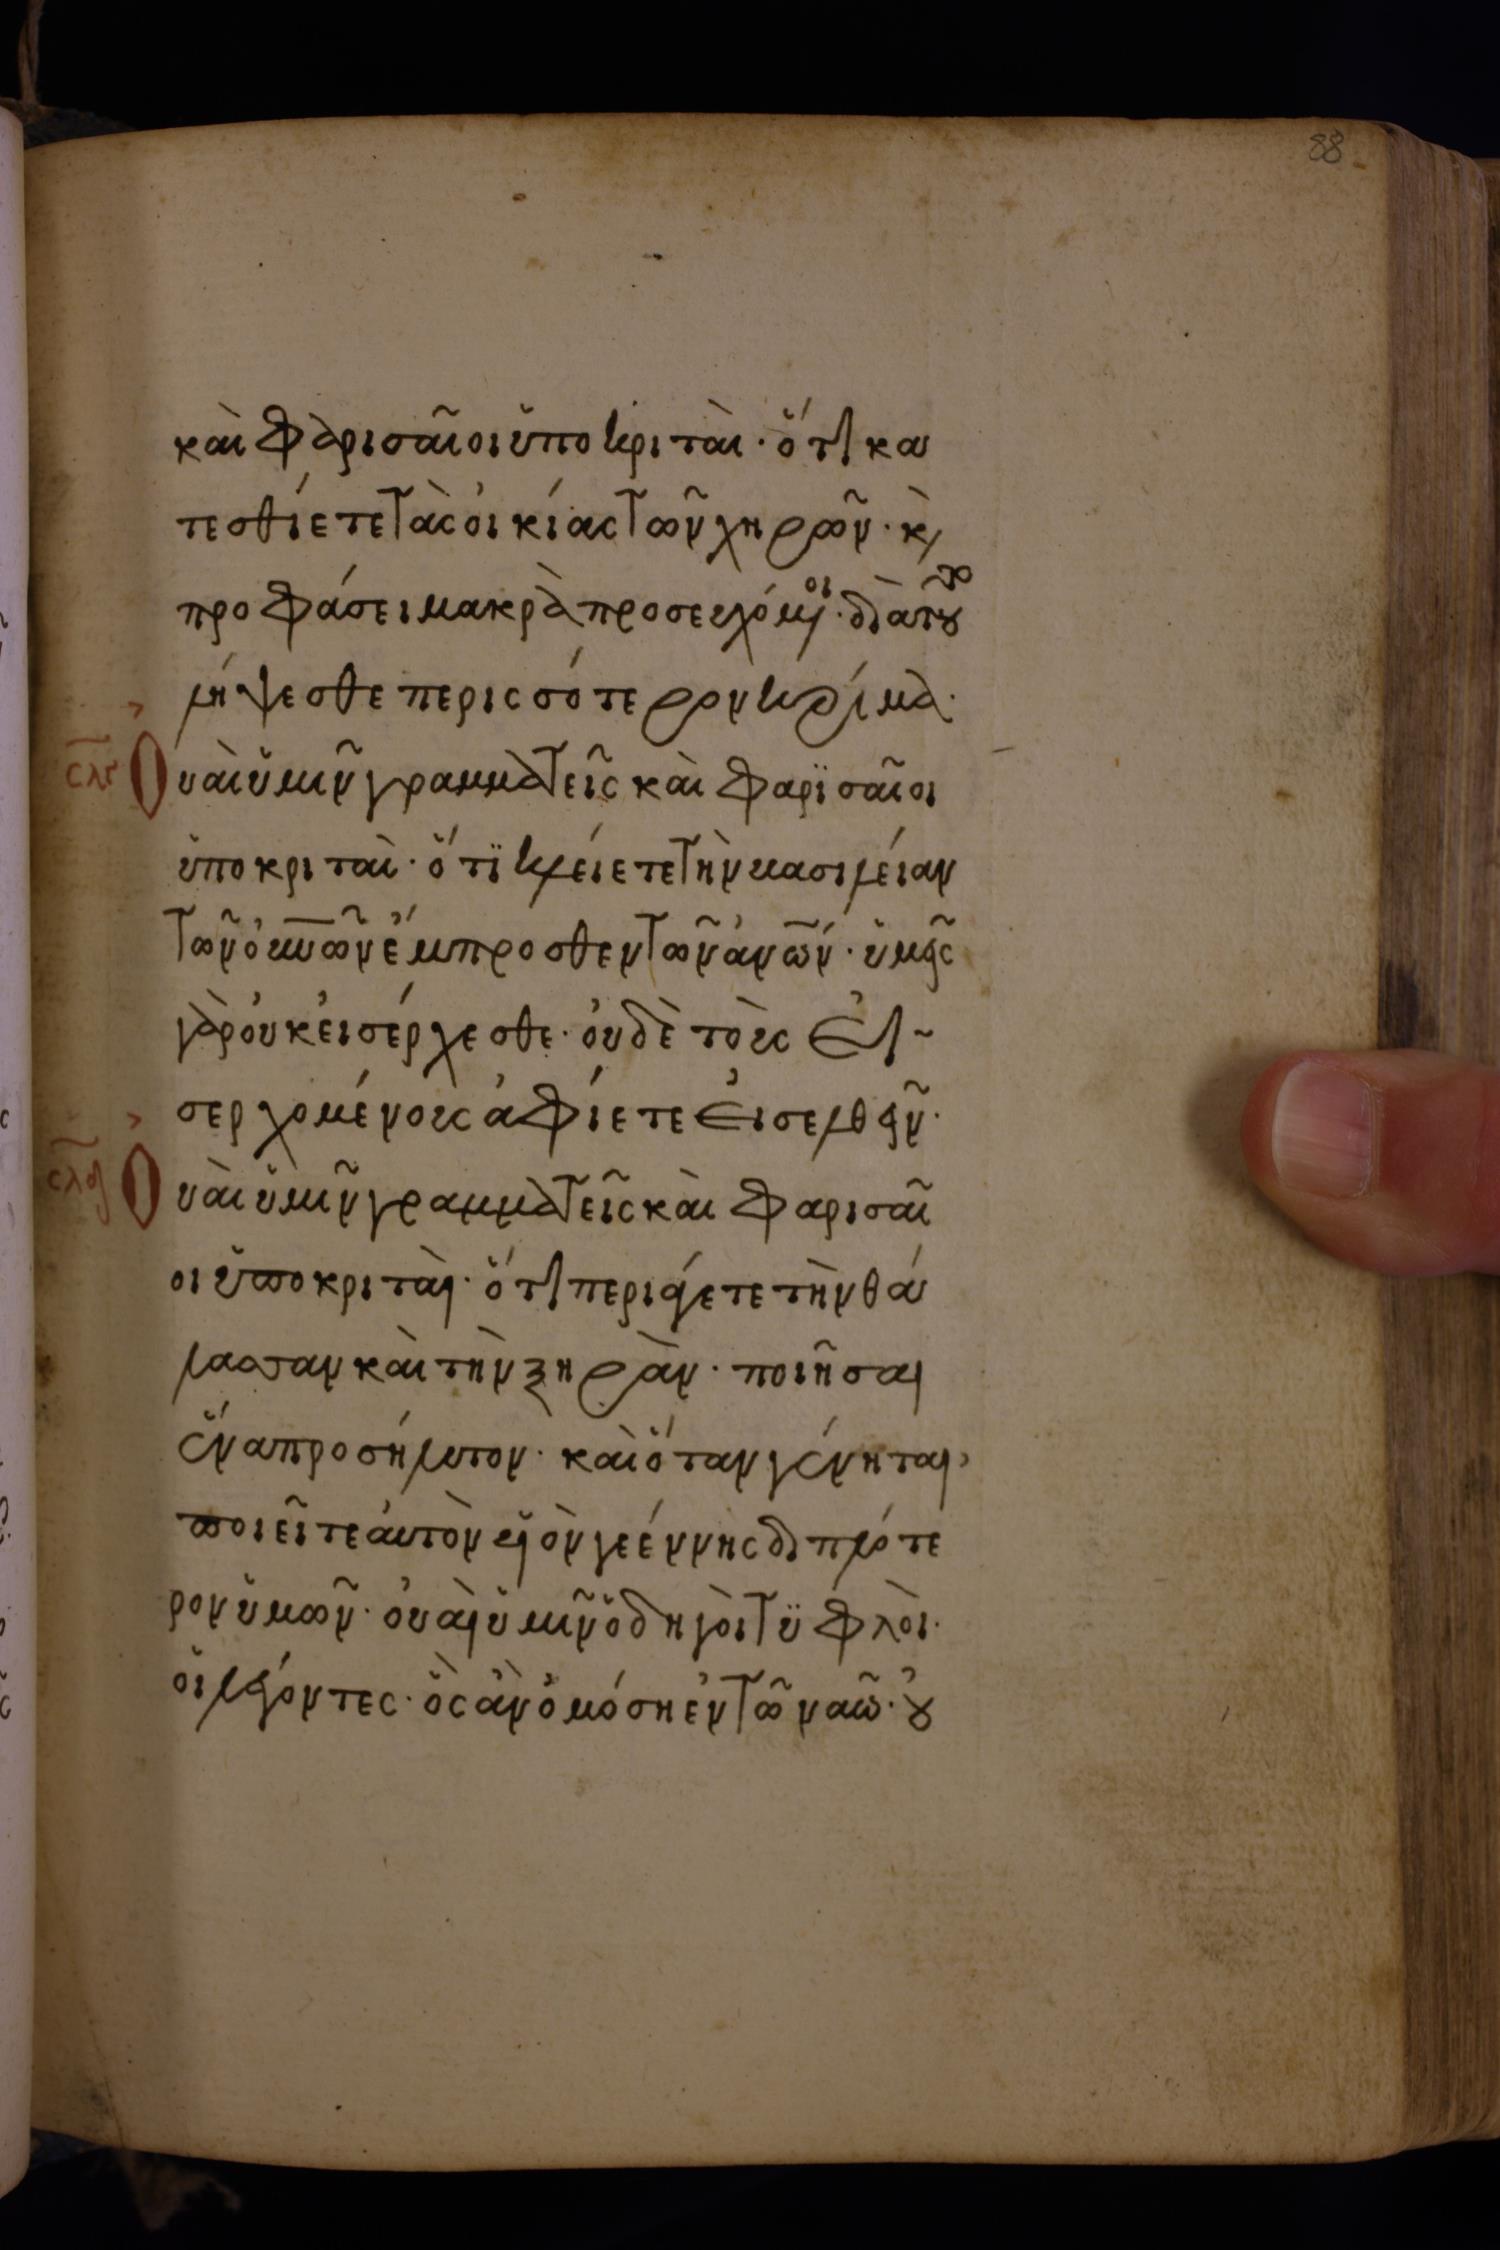 88
καὶ φαρισαῖοι ὑποκριταὶ· ὅτι κα
τεσθίετε τὰς οἰκίας τῶν χηρῶν· κ
προφάσει μακρὰ προσευχόμοι· διὰ τοῦτο
λήψεσθε περισσότερον κρίμα·
σλ Οὐαὶ ὑμῖν γραμματεῖς καὶ φαρϊσαῖοι
ὑποκριταὶ· ὅτϊ κλείετε τὴν βασιλείαν
τῶν οὐνῶν ἔμπροσθεν τῶν ἀνῶν· ὑμεῖς
γὰρ οὐκ εἰσέρχεσθε· οὐδὲ τοὺς εἰ
σερχομένους ἀφίετε εἰσελθεῖν·
σλ Οὐαὶ ὑμῖν γραμματεῖς καὶ φαρισαῖ
οι ὑποκριταὶ· ὅτι περιάγετε τὴν θά
λασσαν καὶ τὴν ξηρὰν· ποιῆσαι
ἕνα προσήλυτον· καὶ ὅταν γένηται,
ποιεῖτε αὐτὸν υἱὸν γεέννης διπλότε
ρον ὑμῶν· οὐαὶ ὑμῖν ὁδηγοὶ τϋφλοὶ·
οἱ λέγοντες· ὃς ἂν ὀμόση ἐν τῶ ναῶ· οὐ